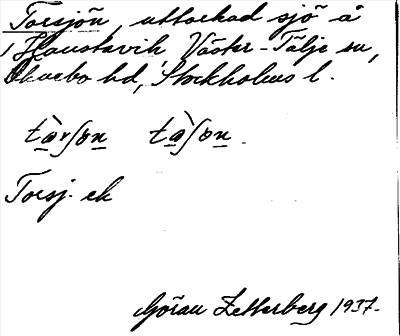 Torsjön, uttorkad sjö å
Haustavik Väster-Tälje sn,
Öknebo hd, Stockholms l.
tàrʃɷn tàʃɷn.
Torsj. ek
Göran Zetterberg 1937.